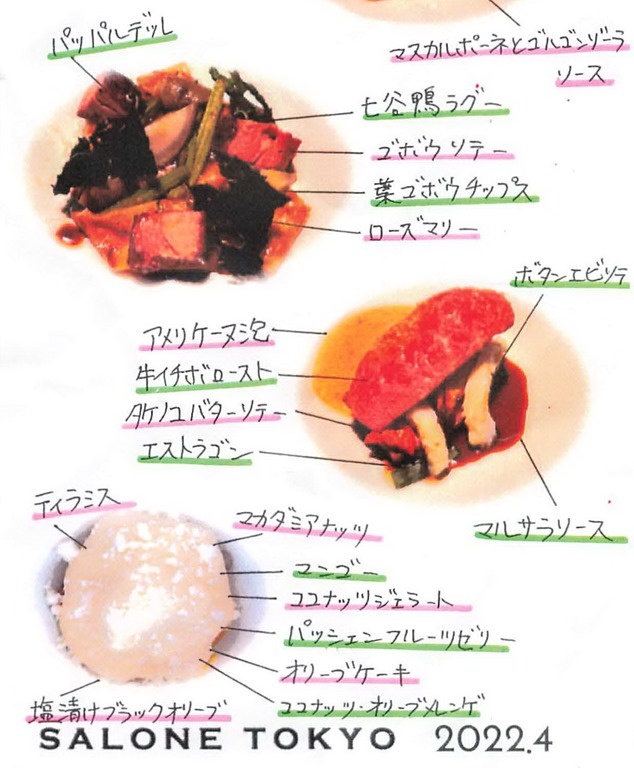 パッパルデッレ
マスカルポーネとゴルゴンゾーラ
ソース
七谷鴨ラグー
ゴボウソテー
葉ゴボウチップス
ローズマリー
ボタンエビソテ
アメリケーヌ泡
牛イチボロースト
タケノコバターソテー
エストラゴン
マルサラソース
ティラミス
マカダミアナッツ
マンゴー
ココナッツジェラート
パッションフルーツゼリー
オリーブケーキ
ココナッツ・オリーブメレンゲ
塩漬けブラックオリーブ
SALONE TOKYO 2022.4